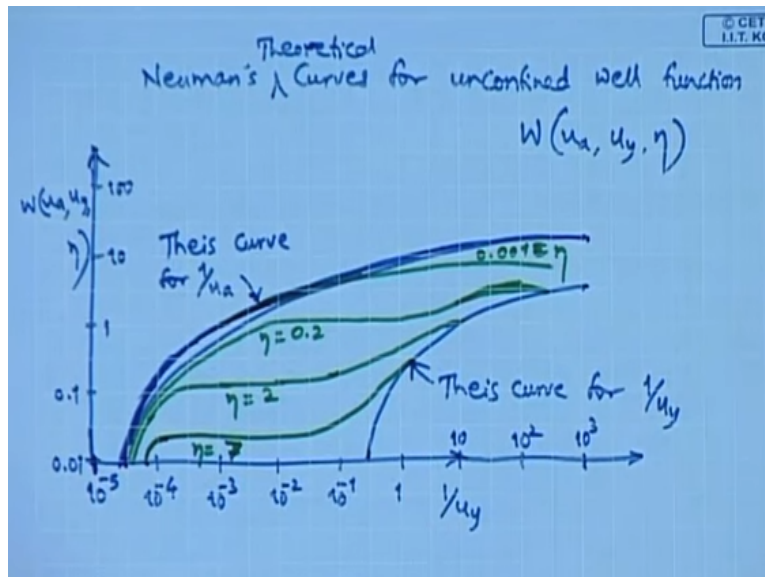 © CET
I.I.T. K
Theoretical
Neuman's ∧ Curves for unconfined well function
W(ua, uy, η)
W(ua, uy,
η)
100
10
1
0.1
0.01
Theis Curve
for 1/ua
0.001 η
η = 0.2
η = 2
η = 7
Theis Curve for 1/uy
10⁻⁵ 10⁻⁴ 10⁻³ 10⁻² 10⁻¹ 1 10 10² 10³
1/uy